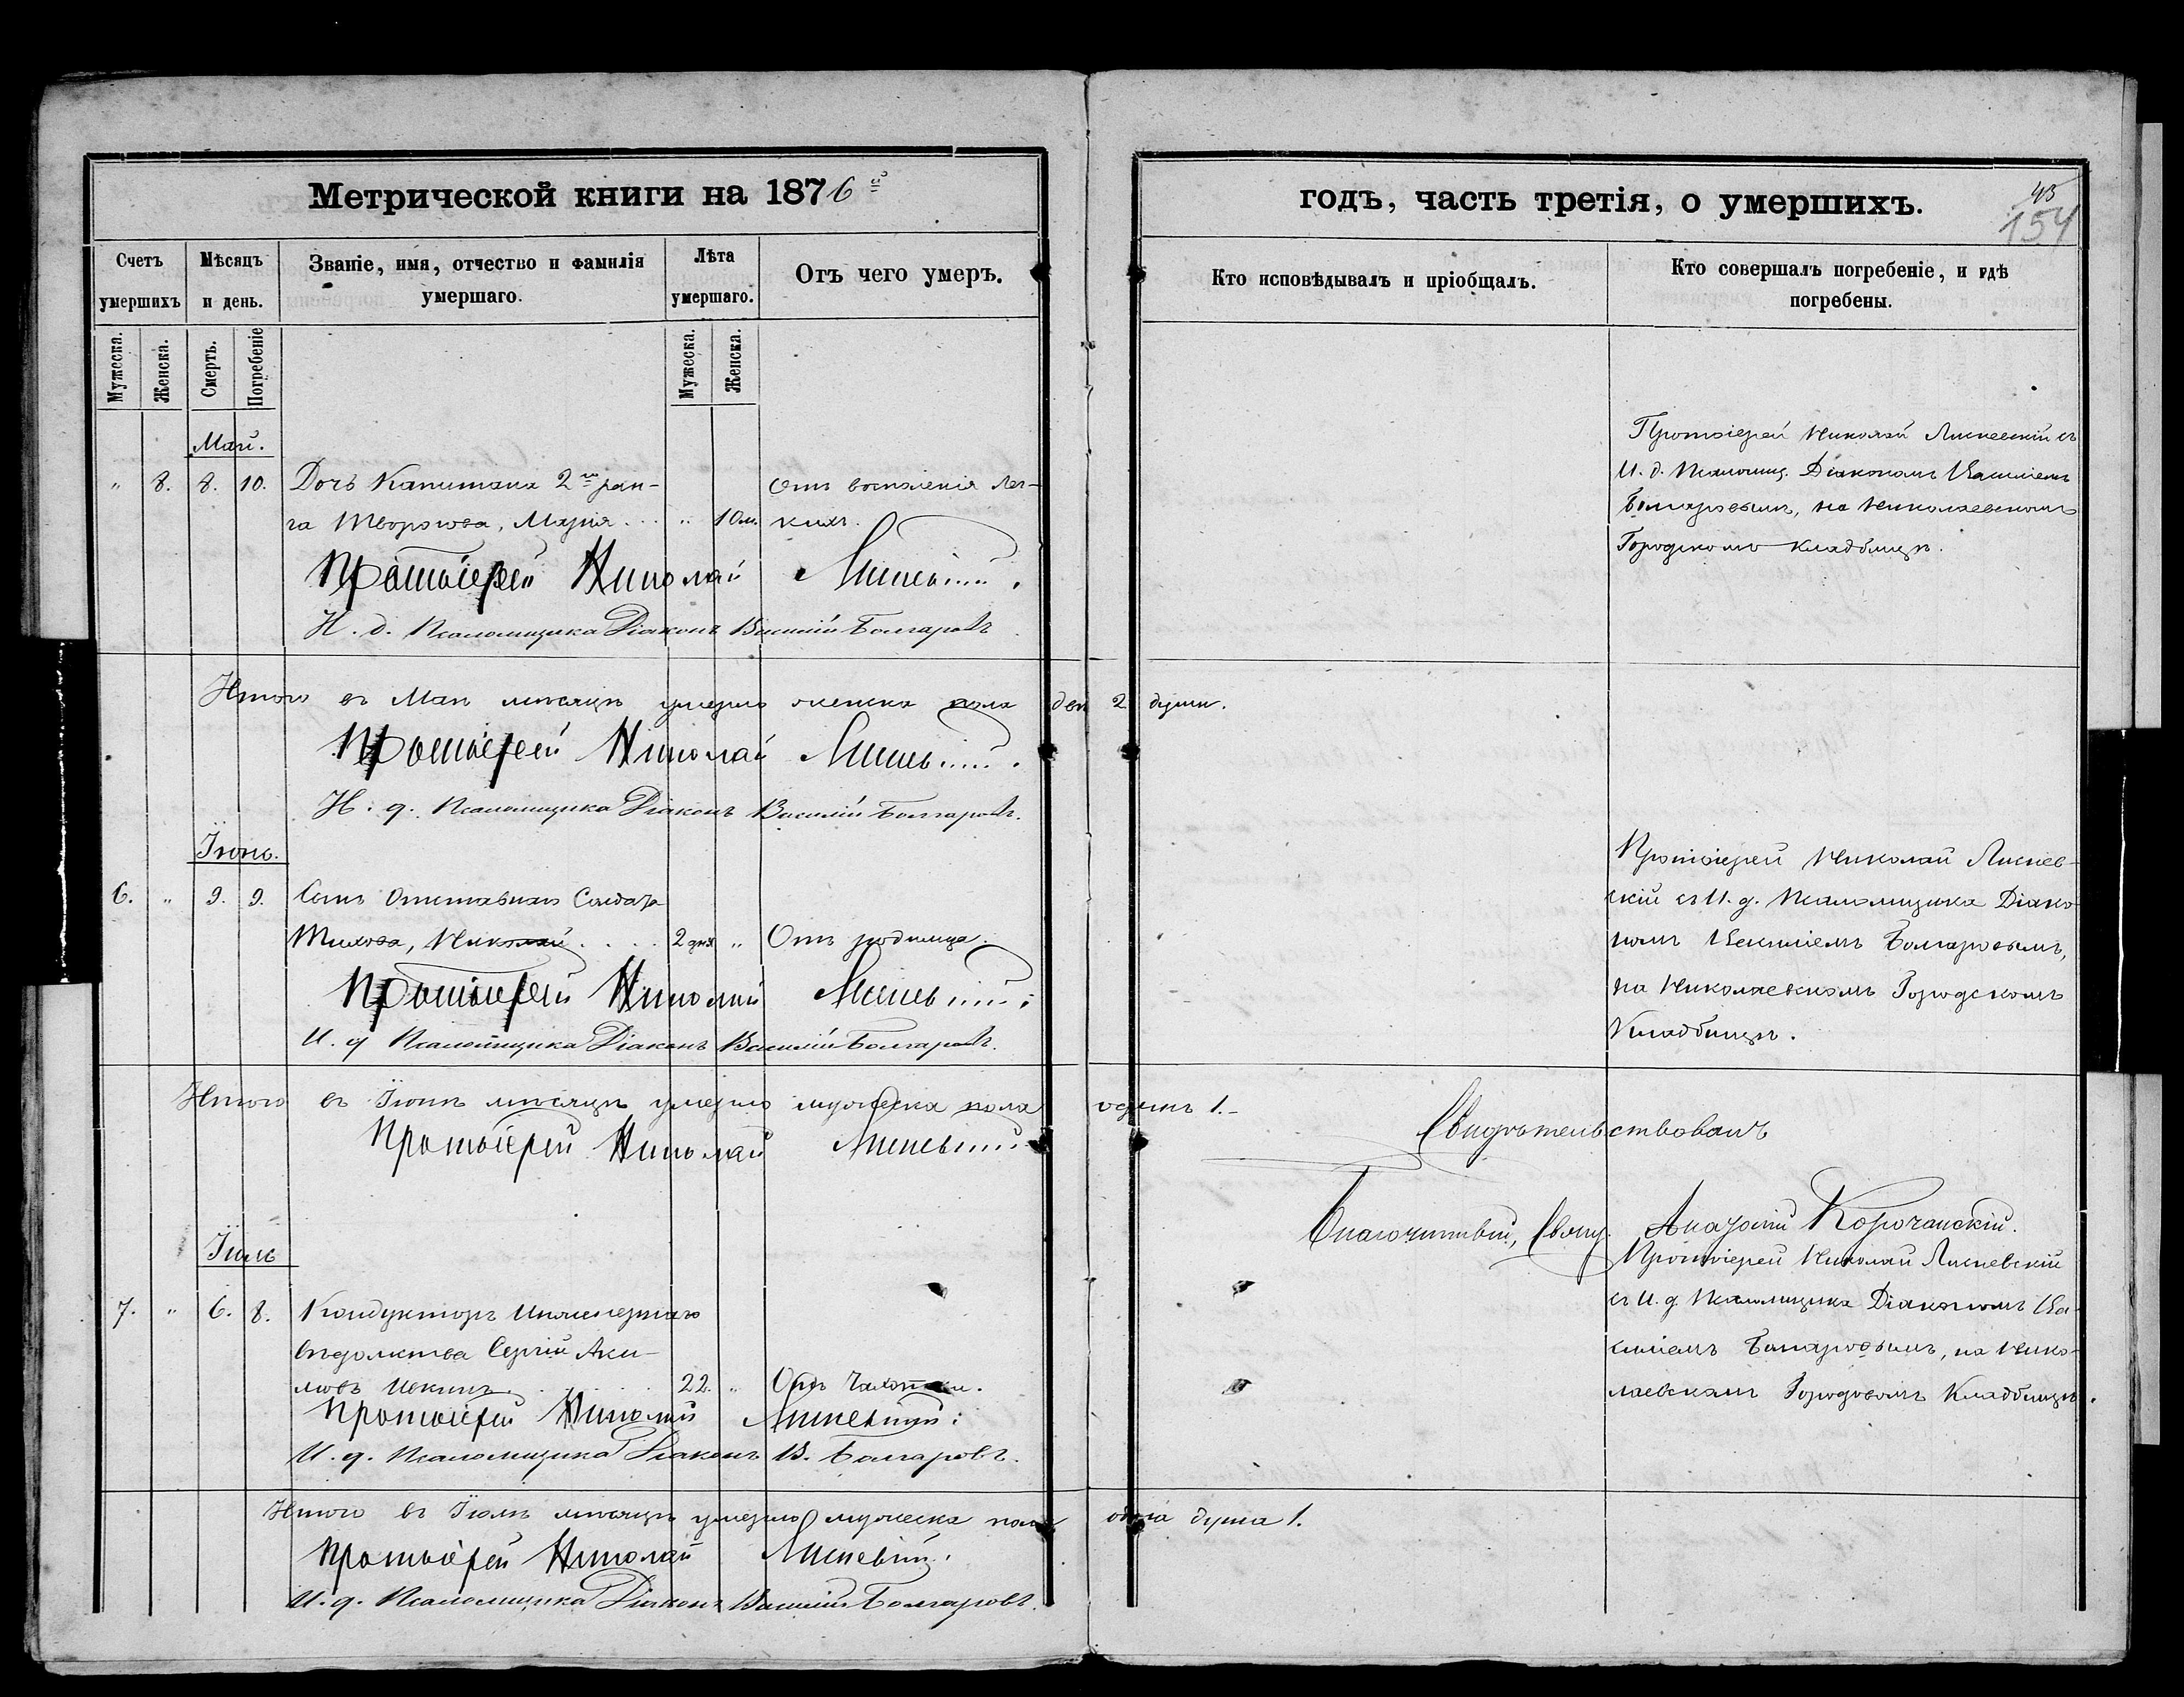 Метрической книги на 1876 й
годъ, часть третія, о умершихъ.
43
154
Счетъ умершихъ
Мѣсяцъ и день.
Званіе, имя, отчество и фамилія умершаго.
Лѣта умершаго.
Отъ чего умеръ.
Кто исповѣдывалъ и пріобщалъ.
Кто совершалъ погребеніе, и гдѣ погребены.
Мужеска.
Женска.
Смерть.
Погребеніе
Мужеска.
Женска.
Май.
" 8. 8. 10. Дочь Капитана 2го ран-
га Творогова, Марія . . . " 10 м.
Отъ воспаленія Лег-
кихъ.
Протоіерей Николай Лисневскій съ
И. д. Псаломщ. Діакономъ Василіемъ
Болгаровымъ, на Николаевскомъ
Городскомъ кладбищѣ.
Протоіерей Николай Лисневскій.
И. д. Псаломщика Діаконъ Василій Болгаровъ.
Итого въ Маѣ мѣсяцѣ умерло женска пола двѣ 2 души.
Протоіерей Николай Лисневскій.
И. д. Псаломщика Діаконъ Василій Болгаровъ.
Іюнь.
6. " 9. 9. Сынъ Отставнаго Солдата
Тихова, Николай . . . . 2 дня " Отъ родимца.
Протоіерей Николай Лиснев-
скій съ И. д. Псаломщика Діако-
номъ Василіемъ Болгаровымъ,
на Николаевскомъ Городскомъ
Кладбищѣ.
Протоіерей Николай Лисневскій.
И. д. Псаломщика Діаконъ Василій Болгаровъ.
Итого въ Іюнѣ мѣсяцѣ умерло мужеска пола одинъ 1.-
Протоіерей Николай Лисневскій
Свидѣтельствовалъ
Благочинный, Свящ. Корочанскій.
Іюль
7. " 6. 8. Кондукторъ Инженернаго
вѣдомства Сергій Аки-
мовъ . . . 22. " Отъ Чахотки.
Протоіерей Николай Лисневскій
съ И. д. Псаломщика Діакономъ Ва-
силіемъ Болгаровымъ, на Нико-
лаевскомъ Городовомъ Кладбищѣ.
Протоіерей Николай Лисневскій.
И. д. Псаломщика Діаконъ В. Болгаровъ.
Итого въ Іюлѣ мѣсяцѣ умерло мужеска пола одна душа 1.
Протоіерей Николай Лисневскій.
И. д. Псаломщика Діаконъ Василій Болгаровъ.